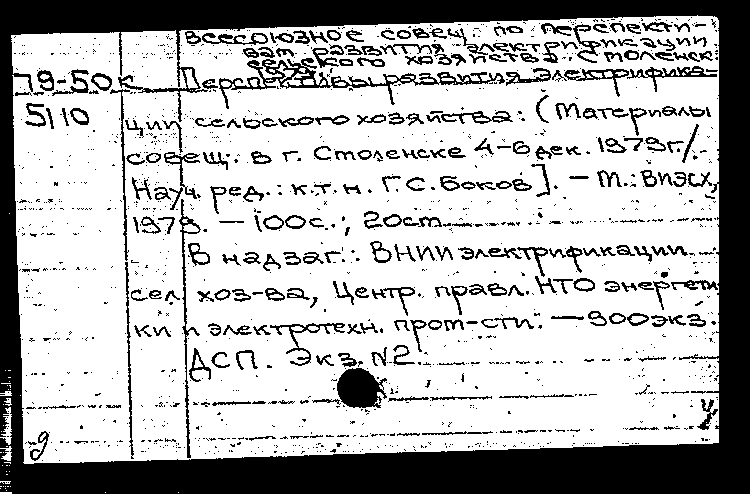 Всесоюзное совещ. по перспекти-
вам развития электрификации
сельского хозяйства. Смоленск.
1979.
79-50к Перспективы развития электрифика-
5110 ции сельского хозяйства: (Материалы
совещ. в г. Смоленске 4-6 дек. 1979г./.
Науч. ред.: к.т.н. Г.С. Боков]. — М.: ВИЭСХ,
1979. — 100с.; 20см
В надзаг.: ВНИИ электрификации
сел. хоз-ва, Центр. правл. НТО энергети
ки и электротехн. пром-сти. — 900экз.
ДСП. Экз. N2